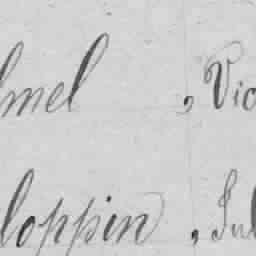 lmel , Vic
loppin , Jul